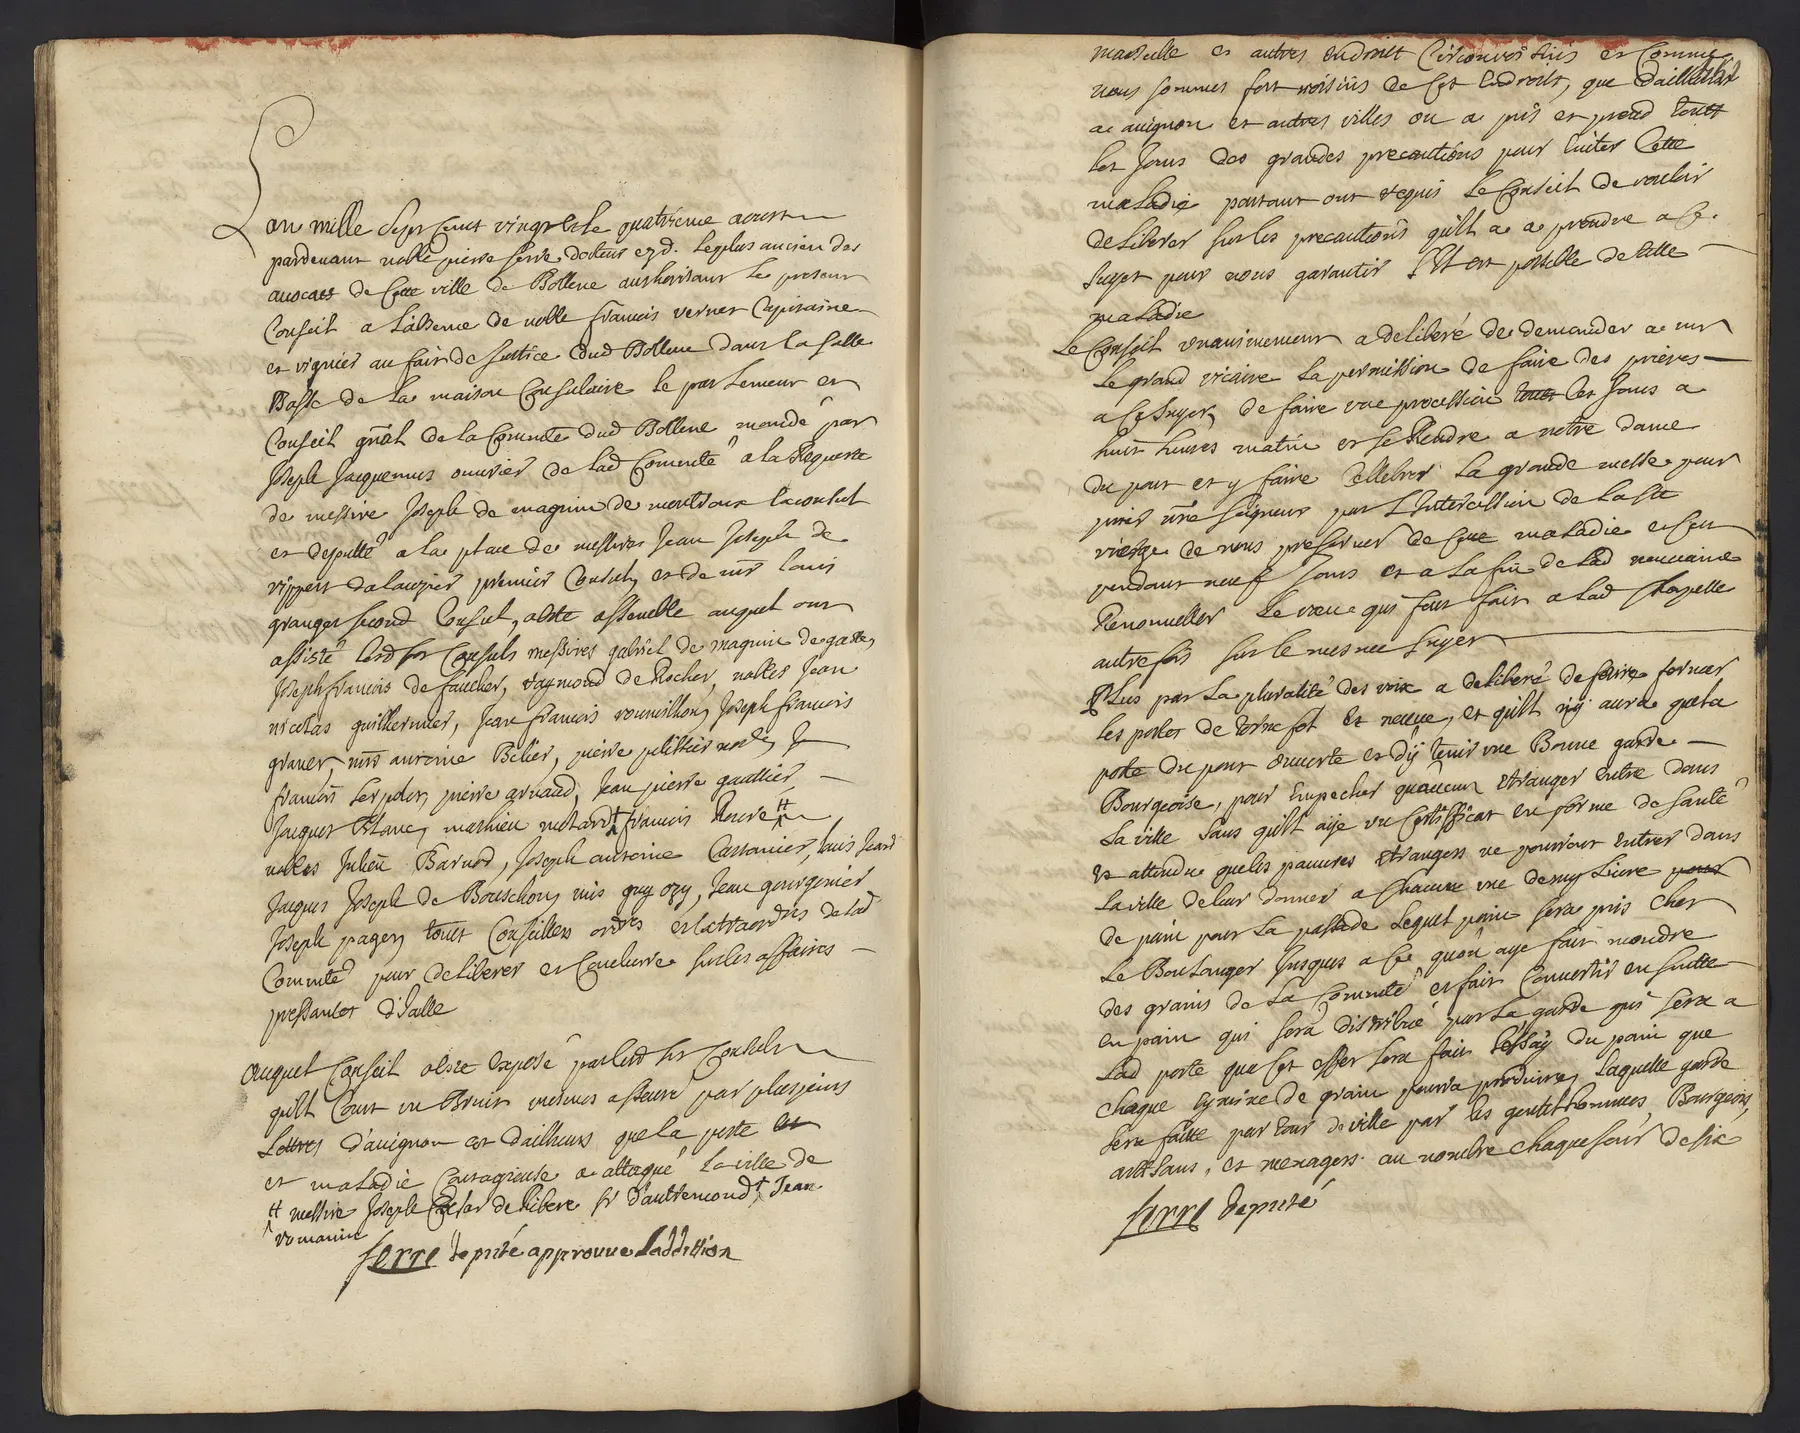 Lan mille sept cent vingt et le quatrieme aoust
pardevant noble pierre serre docteur ez d. le plus ancien des
avocats de cette ville de Bollene authorisant le present
Conseil a labsence de noble francois vernet Capitaine
et viguier au fait de justice dud Bollene dans la salle
Basse de la maison Consulaire le parlement et
Conseil gnal de la Comunte dud Bollene mande par
Joseph Jacquemus ouvrier de lad Comunte a la Requeste
de messire Joseph de magnin de montroux exconsul
et deputte a la place de messire Jean Joseph de
rippert dalauzier premier Consul, et de mr louis
granget second Consul, a este assemble auquel ont
assiste lesd srs Consuls messires gabriel de magnin de gaste,
Joseph francois de faucher, raymond de Rocher, nobles Jean
nicolas guilhermier, Jean francois roumillon, Joseph francois
granet, mrs antoine Belier, pierre pelissier
francois pierre arnaud, Jean pierre gaultier,
Jacques Blanc, mathieu motard francois Roure
nobles Julien Barnod, Joseph antoine Cartanier, louis Jean
Jacques Joseph de Bouschon, mis guy ozy, Jean gourgonier
Joseph pagez, touts Conseillers ordres et extraordres de lad
Comunte pour deliberer et Conclurre sur les affaires
pressantes d'Icelle
Auquel Conseil a este expose par lesd srs Consuls
quil Court un Bruit mesmes asseure par plusieurs
Lettres d'avignon et dailheurs que la peste et
et maladie Contagieuse a attaque la ville de
messire Joseph Cesar de Ribere sr d'autremond Jean
romanin
serre depute approuve Laddition
marseille et autres endroits Circonvoisins et Comme
nous sommes fort voisins de Cet Endroit, que dailleurs
a avignon et autres villes on a pris et prend touts
les Jours des grandes precautions pour Eviter Cette
maladie partant ont requis le Conseil de vouloir
deliberer sur les precautions quil a a prendre a Ce
sujet pour nous garantir sil est possible de cette
maladie
Le Conseil unanimement a delibere de demander a mr
le grand vicaire la permission de faire des prieres
a Ce sujet, de faire une procession touts les Jours a
huit heures matin et se Rendre a notre dame
du pont et y faire Cellebrer la grande messe pour
prier nre seigneur par L'Intercession de la ste
vierge de nous preserver de Cette maladie et Ceu
pendant neuf Jours et a la fin de lad neuvaine
Renouveller le voeu qui feut fait a lad Chapelle
autrefois sur le mesme sujet
Plus par la pluralite des voix a delibere de faire fermer
les portes de tournefol et neuve, et quil ny aura que la
porte du pont ouverte et d'y tenir une Bonne garde
Bourgeoise, pour Empecher quaucun etranger entre dans
la ville sans quil aye un Certifficat en forme de sante
et attendu que les pauvres etrangers ne pourront entrer dans
la ville de leur donner a Chacun une demy Livre
de pain pour La passade Lequel pain sera pris Cher
le Boulanger Jusques a Ce quon aye fait moudre
des grains de la Comunte et fait Convertir en suitte
en pain qui sera distribue par la garde qui sera a
lad porte que Cet effet sera fait L'essay du pain que
chaque eymine de grain pourra produire, Laquelle garde
sera faite par tour de ville par les gentilhommes, Bourgeois,
artisans, et menagers au nombre chaque soir de six
serre depute